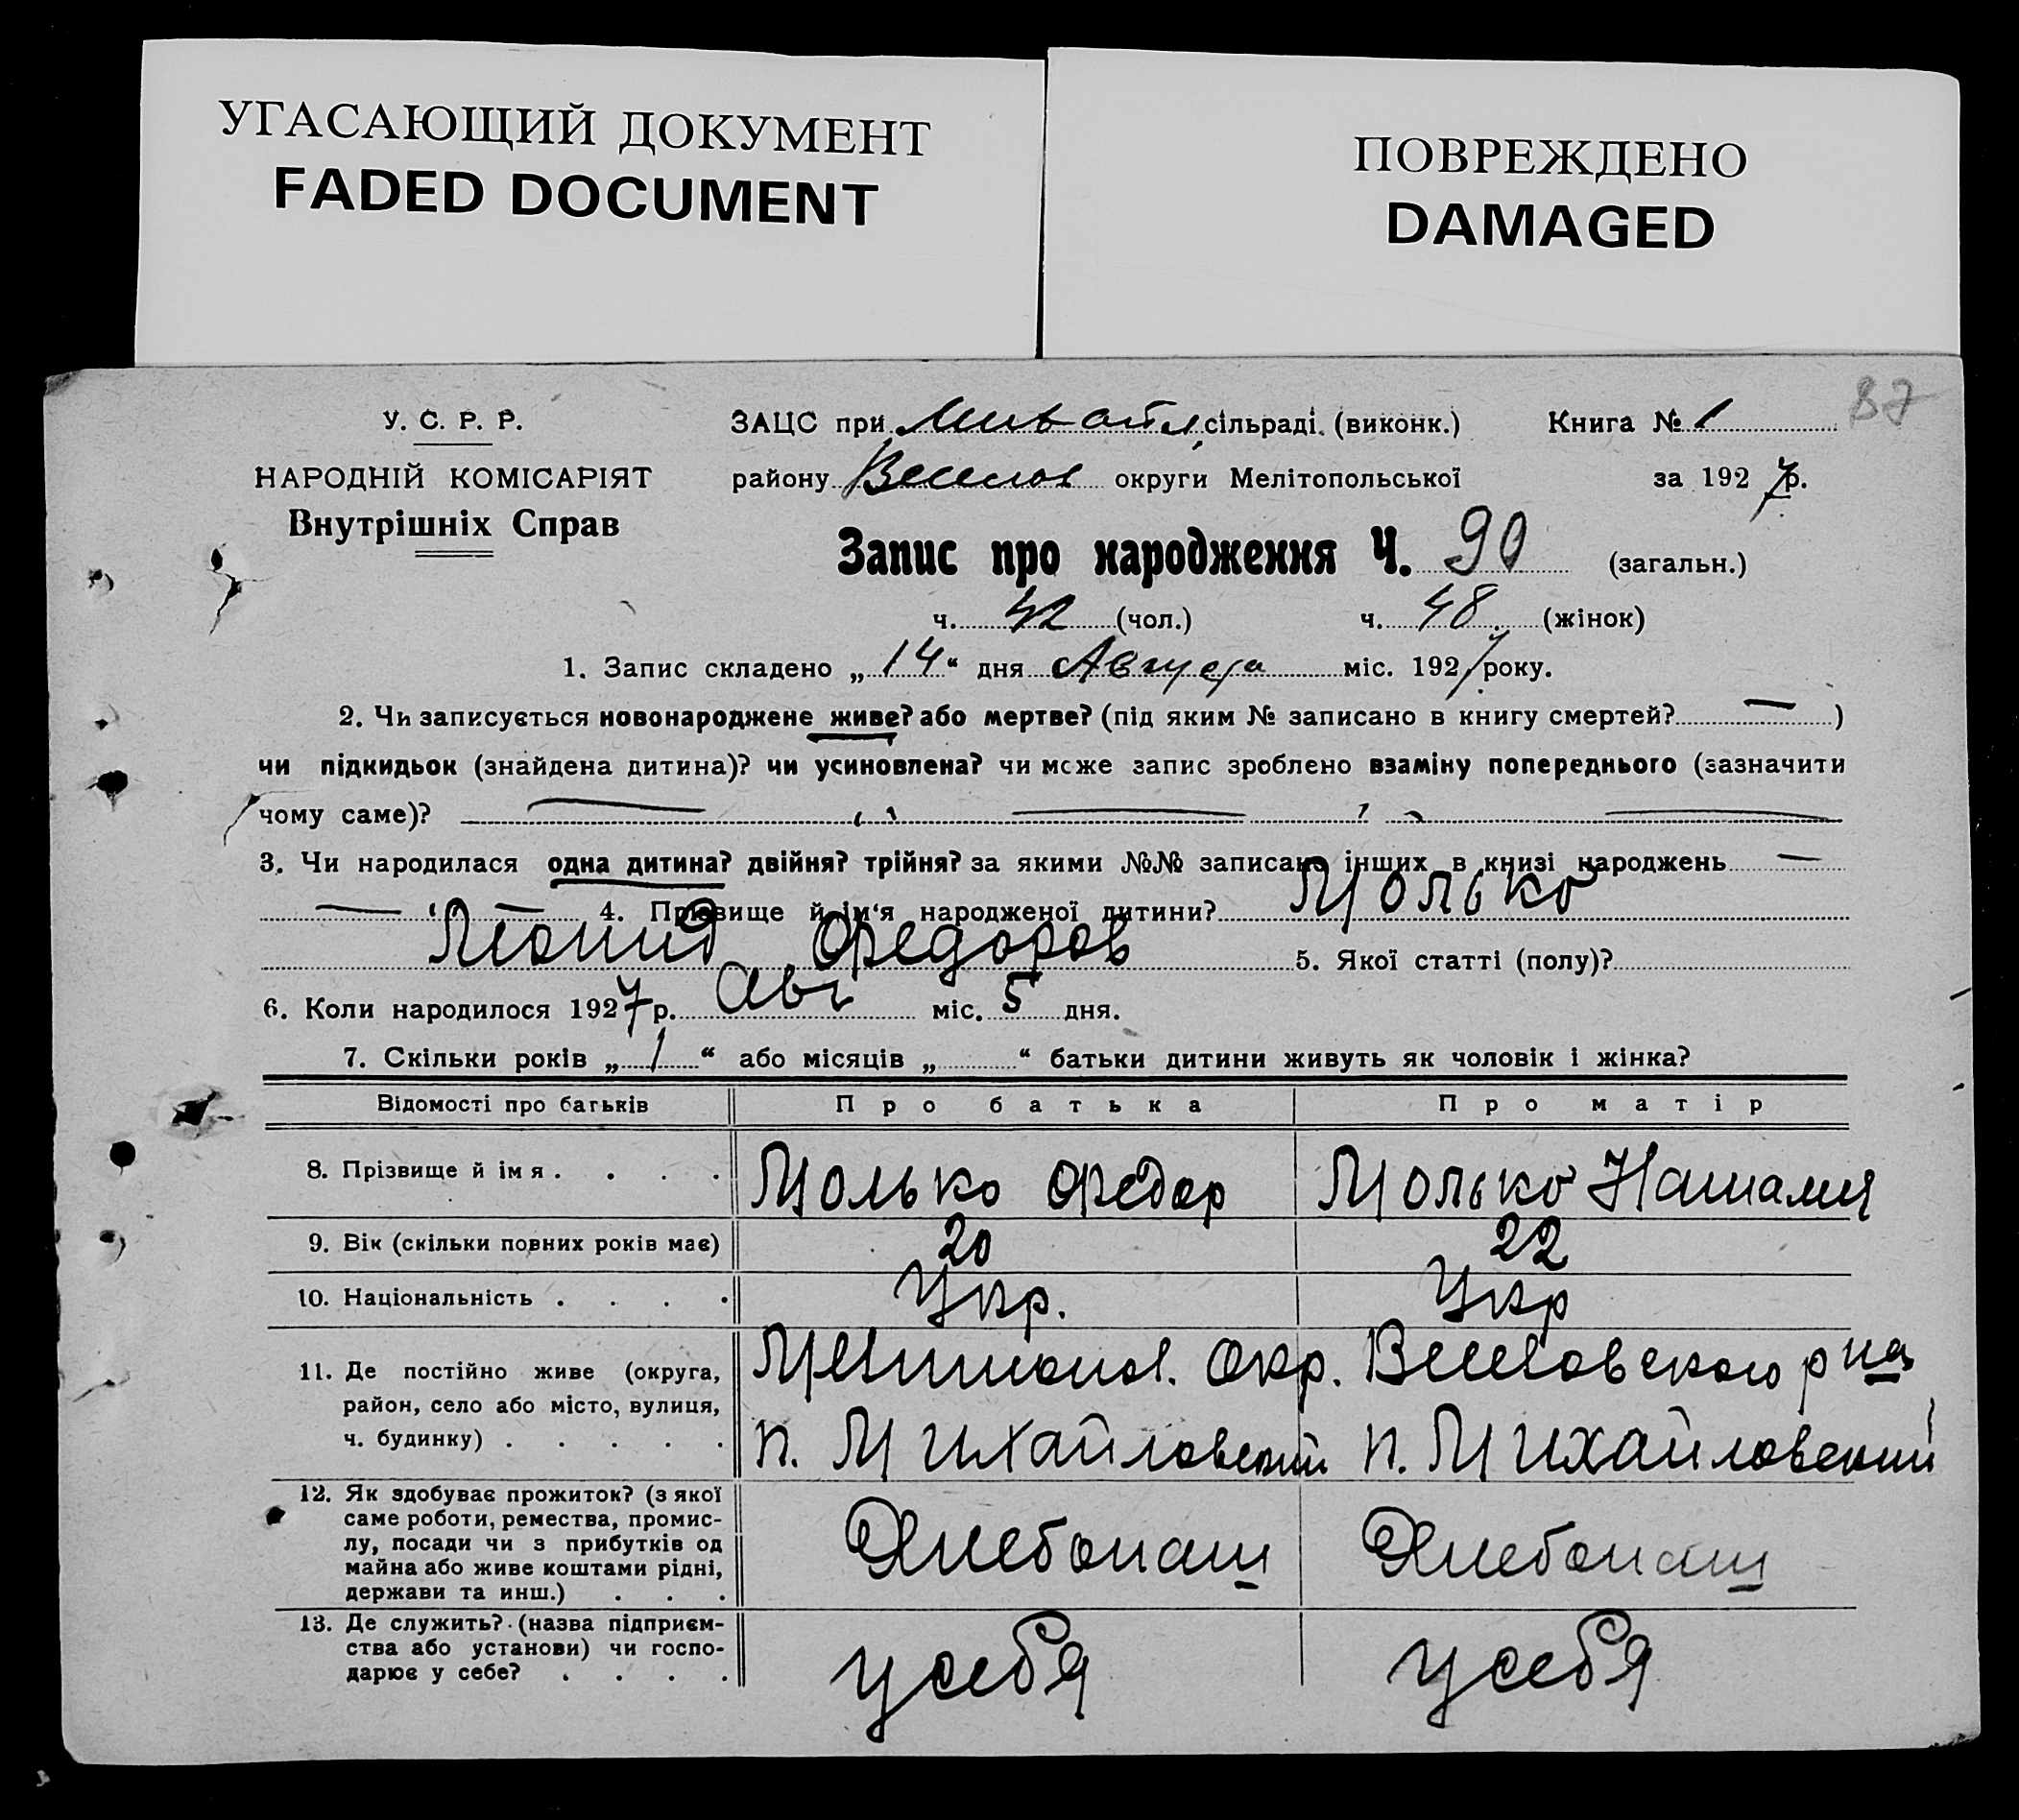 УГАСАЮЩИЙ ДОКУМЕНТ
FADED DOCUMENT
ПОВРЕЖДЕНО
DAMAGED
87
У. С. Р. Р.
НАРОДНІЙ КОМІСАРІЯТ
Внутрішніх Справ
ЗАЦС при Михайл. сільраді (виконк.) Книга № 1
району Веселов округи Мелітопольської за 1927 р.
Запис про народження Ч. 90 (загальн.)
ч. 42 (чол.) ч. 48 (жінок)
1. Запис складено „14“ дня Августа міс. 1927 року.
2. Чи записується новонароджене живе? або мертве? (під яким № записано в книгу смертей? — )
чи підкидьок (знайдена дитина)? чи усиновлена? чи може запис зроблено взаміну попереднього (зазначити
чому саме)?
3. Чи народилася одна дитина? двійня? трійня? за якими №№ записано інших в книзі народжень —
— 4. Прізвище й ім‘я народженої дитини? Молько
Леонид Федоров 5. Якої статті (полу)?
6. Коли народилося 1927 р. Авг міс. 5 дня.
7. Скільки років „1“ або місяців „ “ батьки дитини живуть як чоловік і жінка?
Відомості про батьків Про батька Про матір
8. Прізвище й імя . . . . Молько Федор Молько Наталия
9. Вік (скільки повних років має) 20 22
10. Національність . . . . Укр. Укр
11. Де постійно живе (округа,
район, село або місто, вулиця,
ч. будинку) . . . . .
Мелитопол. Окр. Веселовского р на
п. Михайловский п. Михайловский
12. Як здобуває прожиток? (з якої
саме роботи, ремества, промис-
лу, посади чи з прибутків од
майна або живе коштами рідні,
держави та инш.) . . .
Хлебопаш Хлебопаш
13. Де служить? (назва підприєм-
ства або установи) чи госпо-
дарює у себе? . . . .
у себя у себя